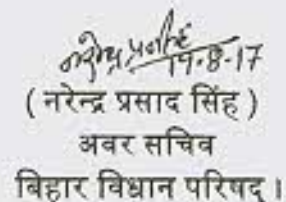 19-8-17
( नरेन्द्र प्रसाद सिंह )
अवर सचिव
बिहार विधान परिषद् ।